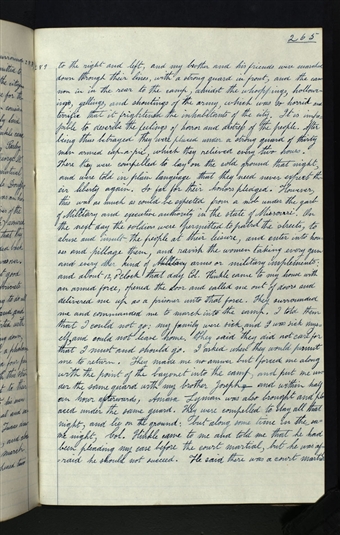 265
to the right and left, and my brother and his friends were marched
down through their lines, with a strong guard in front, and the can-
non in the rear to the camp, amidst the whoopings, hollow-
ings, yellings, and shoutings of the army, which was so horrid and
terrific that it frightened the inhabitants of the city. It is impos-
sible to describe the feelings of horror and distress of the people. After
being thus betrayed they were placed under a strong guard of thirty
men armed cap-a-pie, which they relieved every two hours.
There they were compelled to lay on the cold ground that night,
and were told in plain language that they need never expect the-
ir liberty again. So far for their honors pledged. However,
this was as much as could be expected from a mob under the garb
of Military and executive authority in the state of Missouri. On
the next day the soldiers were permitted to patrol the streets, to
abuse and insult the people at their leisure, and enter into hou-
ses and pillage them, and ravish the women taking away every gun
and every other kind of Military arms or military implements:
and about 12, o'clock that day Col. Hinkle came to my house with
an armed force, opened the door and called me out of doors and
delivered me up as a prisoner unto that force. They surrounded
me and commanded me to march into the camp. I told them
that I could not go; my family were sick, and I was sick mys-
elf, and could not leave home. They said they did not care for
that I must and should go. I asked when they would permit
me to return. They made me no answer but forced me along
with the point of the bayonet into the camp, and put me un-
der the same guard with my brother Joseph; and within half
an hour afterwards, Amasa Lyman was also brought and pl-
aced under the same guard. There we were compelled to stay all that
night, and lie on the ground: but along some time in the sa-
me night, Col. Hinkle came to me and told me that he had
been pleading my case before the court martial, but he was af-
raid he should not succeed. He said there was a court martial